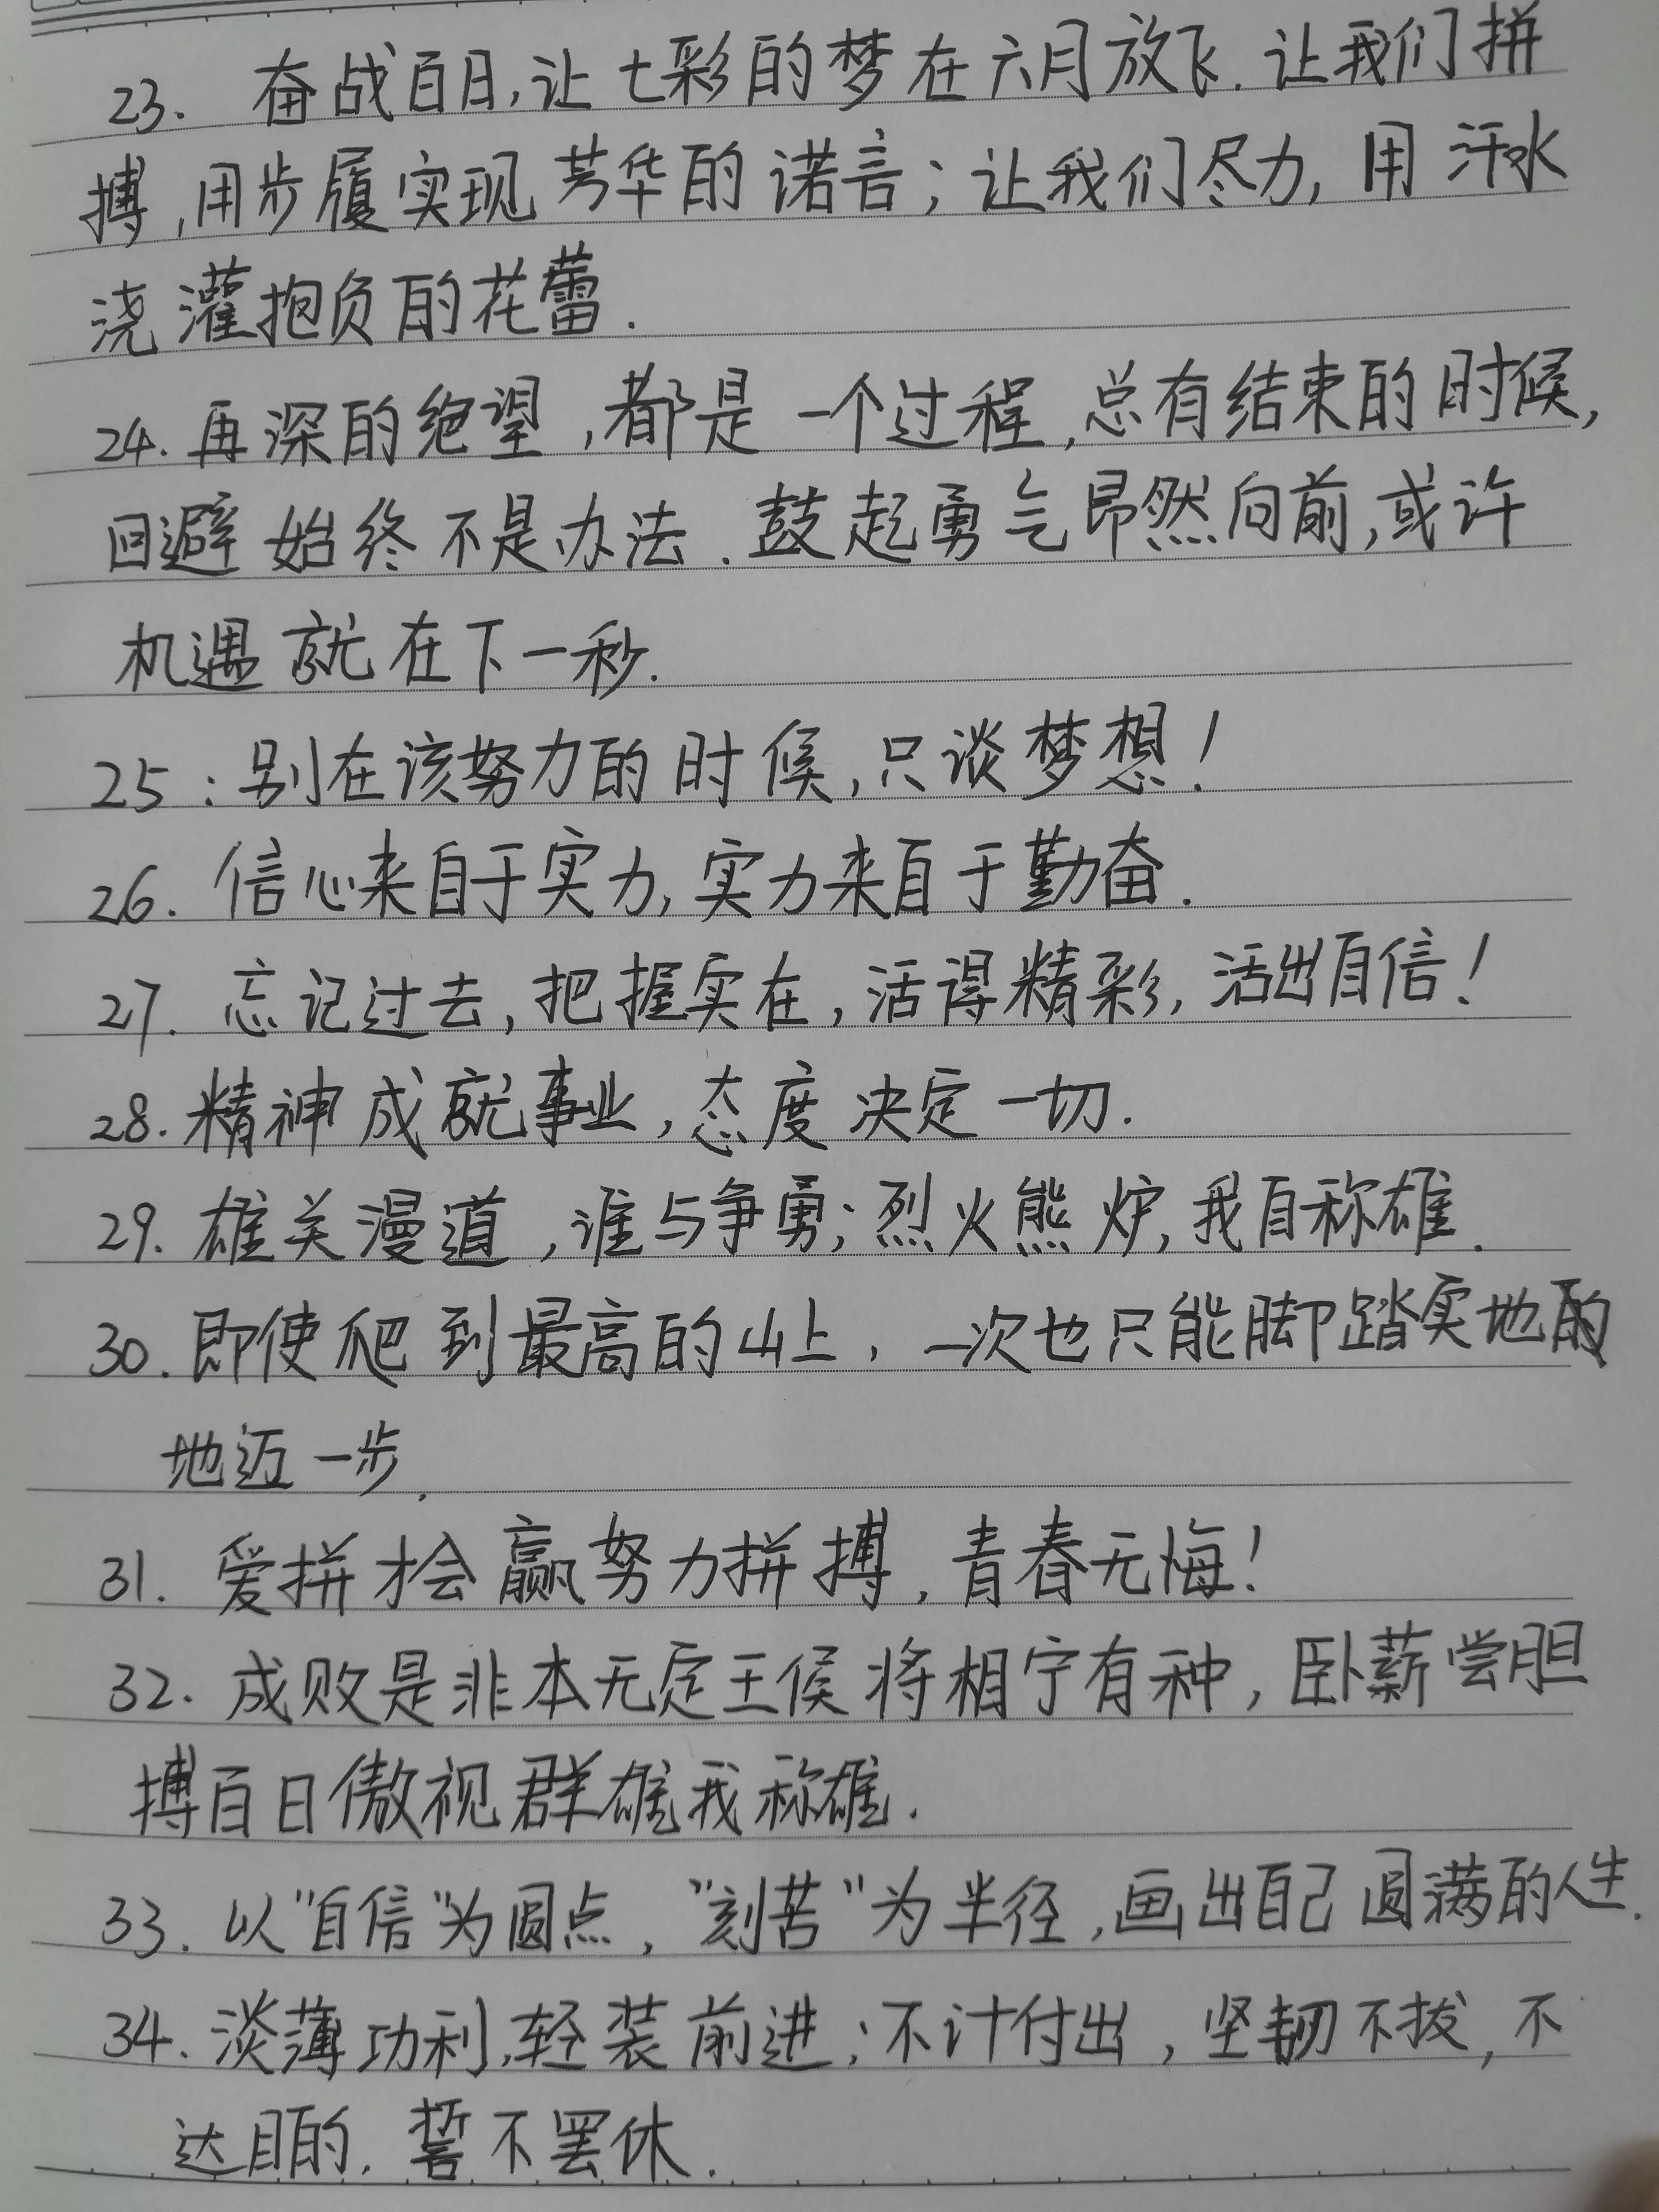 23. 奋战百日,让七彩的梦在六月放飞.让我们拼
搏,用步履实现芳华的诺言;让我们尽力,用汗水
浇灌抱负的花蕾.
24.再深的绝望,都是一个过程,总有结束的时候,
回避始终不是办法.鼓起勇气昂然向前,或许
机遇就在下一秒.
25:别在该努力的时候,只谈梦想!
26.信心来自于实力,实力来自于勤奋.
27.忘记过去,把握实在,活得精彩,活出自信!
28.精神成就事业,态度决定一切.
29.雄关漫道,谁与争勇;烈火熊炉,我自称雄.
30.即使爬到最高的山上,一次也只能脚踏实地的
地迈一步.
31.爱拼才会赢努力拼搏,青春无悔!
32.成败是非本无定王侯将相宁有种,卧薪尝胆
搏百日傲视群雄我称雄.
33.以"自信"为圆点,"刻苦"为半径,画出自己圆满的人生.
34.淡薄功利,轻装前进;不计付出,坚韧不拔,不
达目的.誓不罢休.